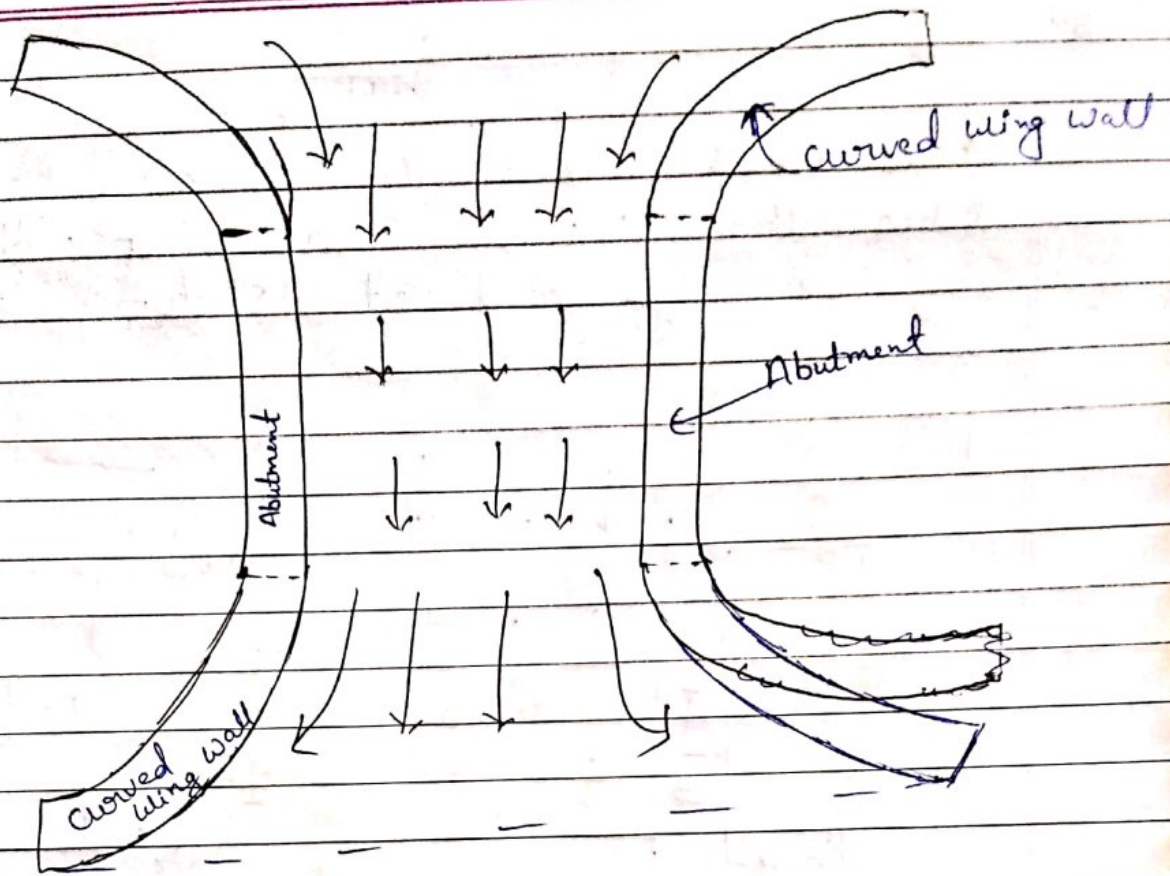 curved wing wall
Abutment
Abutment
curved
wing wall